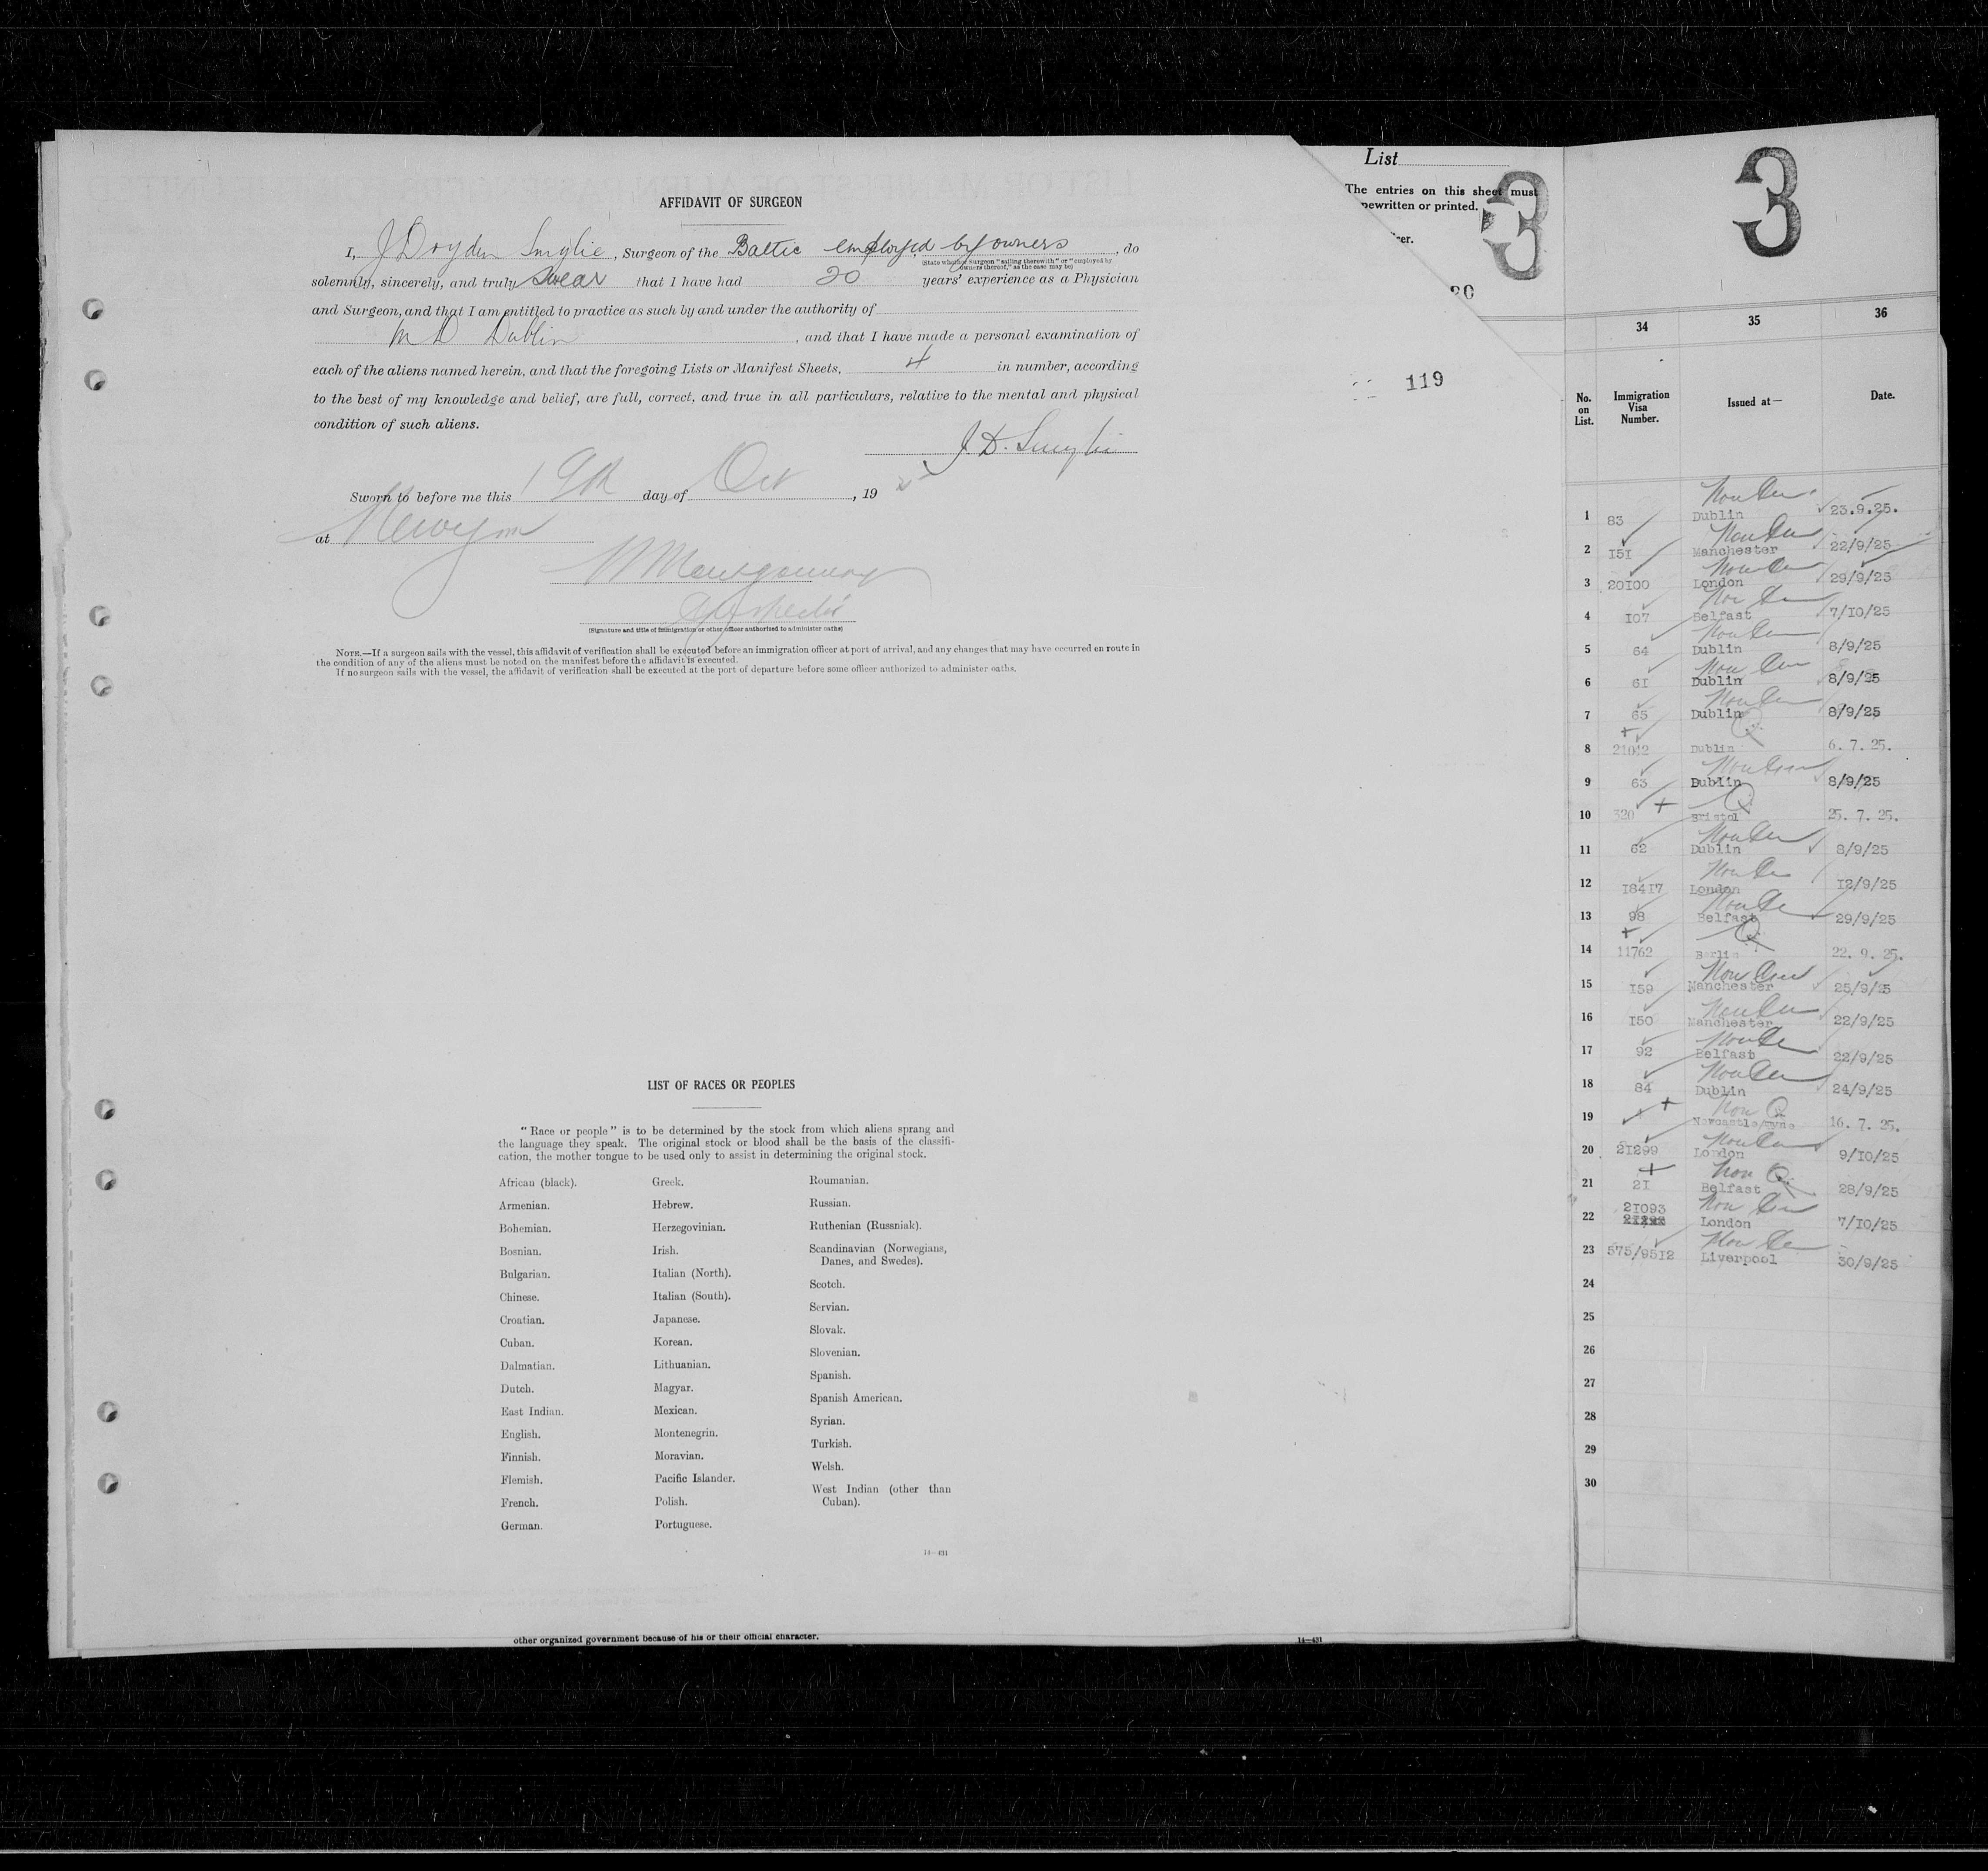 AFFIDAVIT OF SURGEON
I, J Dryden Smylie, Surgeon of the Baltic employed by owners, do
(State whether Surgeon "sailing therewith" or "employed by
owners thereof," as the case may be)
solemnly, sincerely, and truly swear that I have had 20 years' experience as a Physician
and Surgeon, and that I am entitled to practice as such by and under the authority of
M D Dublin, and that I have made a personal examination of
each of the aliens named herein, and that the foregoing Lists or Manifest Sheets, 4 in number, according
to the best of my knowledge and belief, are full, correct, and true in all particulars, relative to the mental and physical
condition of such aliens.
J. D. Smylie
Sworn to before me this 19th day of Oct, 1925
at
Montgomery
(Signature and title of immigration or other officer authorized to administer oaths)
NOTE.—If a surgeon sails with the vessel, this affidavit of verification shall be executed before an immigration officer at port of arrival, and any changes that may have occurred en route in
the condition of any of the aliens must be noted on the manifest before the affidavit is executed.
If no surgeon sails with the vessel, the affidavit of verification shall be executed at the port of departure before some officer authorized to administer oaths.
LIST OF RACES OR PEOPLES
"Race or people" is to be determined by the stock from which aliens sprang and
the language they speak. The original stock or blood shall be the basis of the classifi-
cation, the mother tongue to be used only to assist in determining the original stock.
African (black).
Armenian.
Bohemian.
Bosnian.
Bulgarian.
Chinese.
Croatian.
Cuban.
Dalmatian.
Dutch.
East Indian.
English.
Finnish.
Flemish.
French.
German.
Greek.
Hebrew.
Herzegovinian.
Irish.
Italian (North).
Italian (South).
Japanese.
Korean.
Lithuanian.
Magyar.
Mexican.
Montenegrin.
Moravian.
Pacific Islander.
Polish.
Portuguese.
Roumanian.
Russian.
Ruthenian (Russniak).
Scandinavian (Norwegians,
Danes, and Swedes).
Scotch.
Servian.
Slovak.
Slovenian.
Spanish.
Spanish American.
Syrian.
Turkish.
Welsh.
West Indian (other than
Cuban).
14—431
other organized government because of his or their official character.
14—431
List
3
The entries on this sheet must
pewritten or printed.
cer.
20
119
3
34 35 36
No.
on
List.
Immigration
Visa
Number.
Issued at—
Date.
1 83 Dublin 23.9.25.
2 151 Manchester 22/9/25
3 20100 London 29/9/25
4 107 Belfast 7/10/25
5 64 Dublin 8/9/25
6 61 Dublin 8/9/25
7 65 Dublin 8/9/25
8 21042 Dublin 6. 7. 25.
9 63 Dublin 8/9/25
10 320 Bristol 25. 7. 25.
11 62 Dublin 8/9/25
12 18417 London 12/9/25
13 98 Belfast 29/9/25
14 11762 Berlin 22. 9. 25.
15 159 Manchester 25/9/25
16 150 Manchester 22/9/25
17 92 Belfast 22/9/25
18 84 Dublin 24/9/25
19 Non Q Newcastle/Tyne 16. 7. 25.
20 21299 London 9/10/25
21 21 Non Q Belfast 28/9/25
22 21093 London 7/10/25
23 575/9512 Liverpool 30/9/25
24
25
26
27
28
29
30